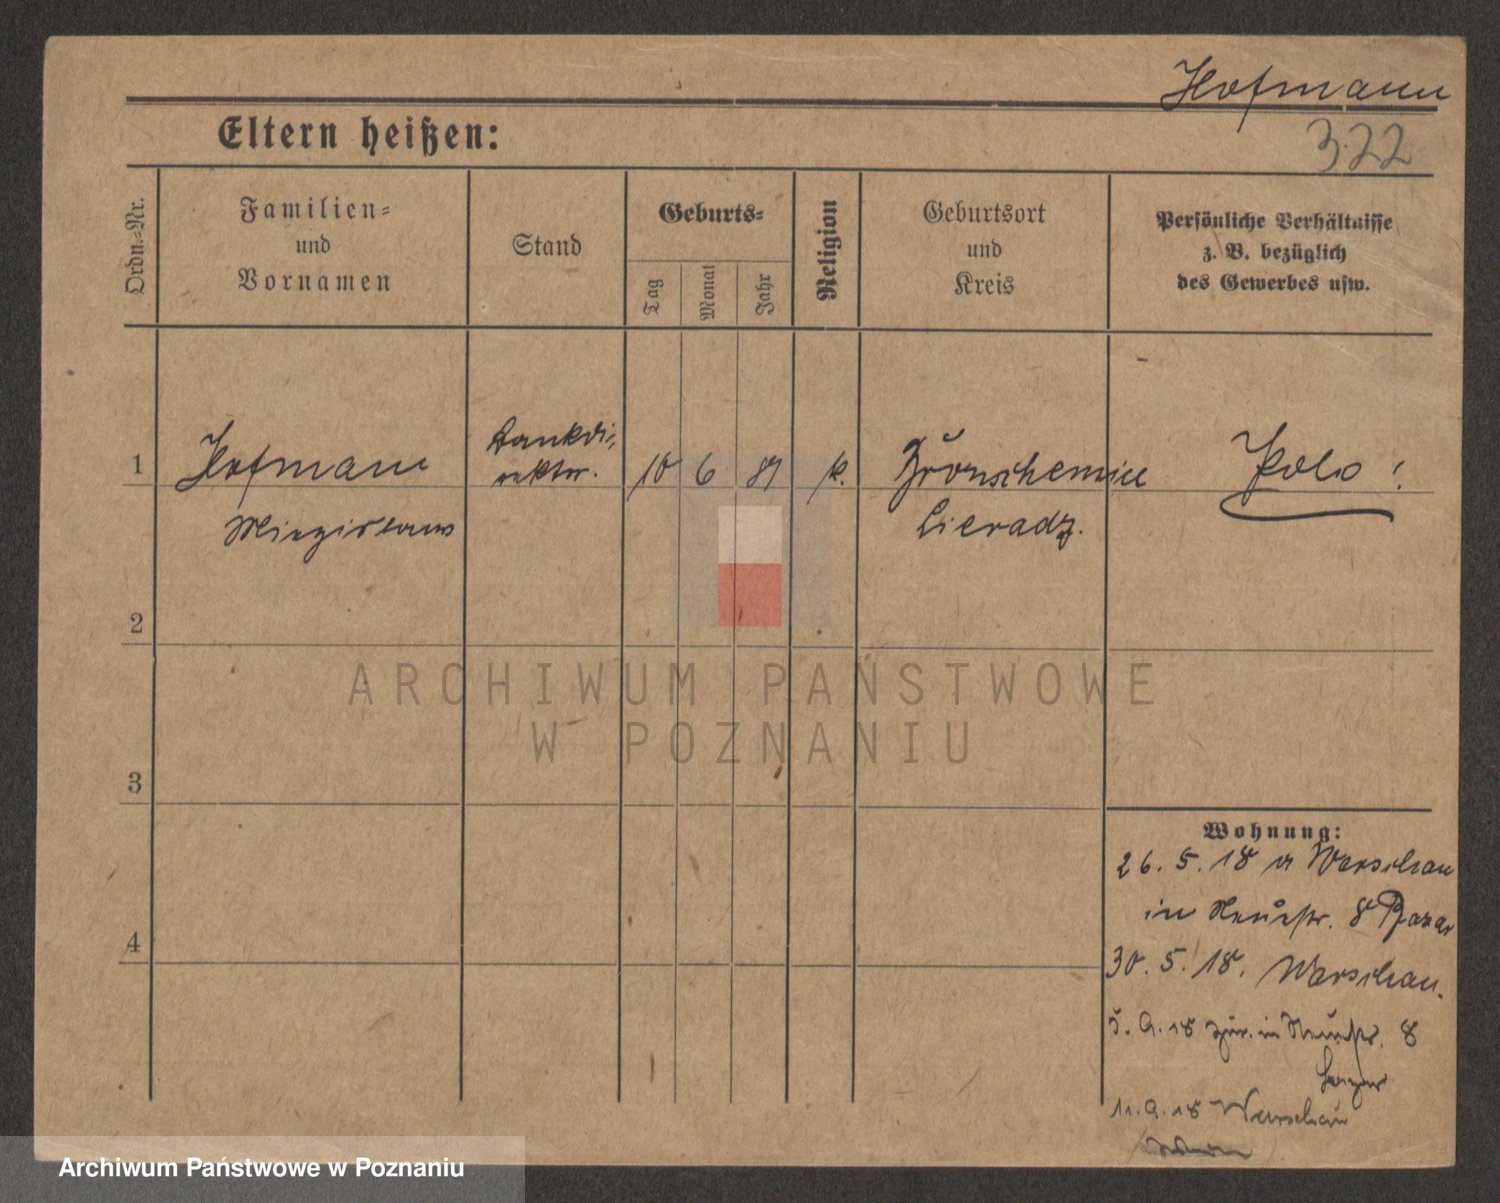 Hofmann
322
Eltern heißen:
Ordn.-Nr.
Familien-
und
Vornamen
Stand
Geburts-
Tag
Monat
Jahr
Religion
Geburtsort
und
Kreis
Persönliche Verhältnisse
z. B. bezüglich
des Gewerbes usw.
1
Hofmann
Miezislaus
Bankdi-
rektor.
10 6 87 k.
Sieradz.
Pole!
2
3
4
ARCHIWUM PAŃSTWOWE
W POZNANIU
Wohnung:
26. 5. 18 a Warschau
in Neuestr. 8 Bazar
30. 5. 18. Warschau.
5. 9. 18 zur. in Neuestr. 8
Bazar
11. 9. 18 Warschau
Archiwum Państwowe w Poznaniu